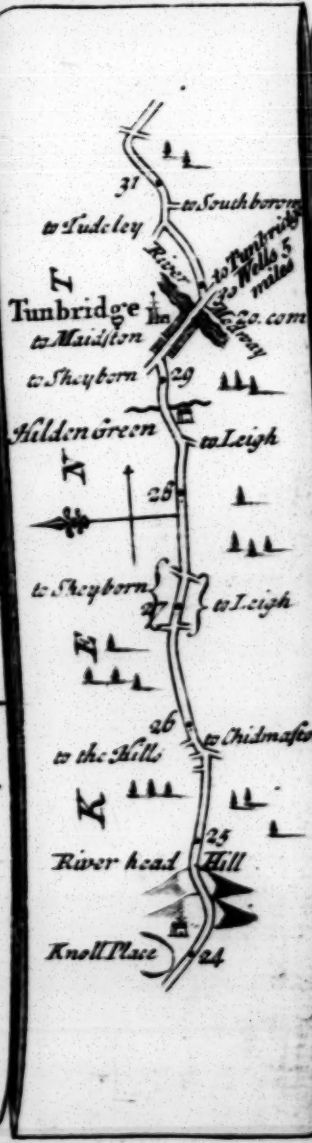 31
to Southborow
to Tudeley
to Tunbridge
Wells 5
miles
River
Medway
T
Tunbridge
30
20. com
to Maidston
to Sheyborn
29
Hilden Green
to Leigh
N
28
to Sheyborn
27
to Leigh
E
26
to Chidmasto
to the Hills
K
25
River head Hill
Knoll Place
24